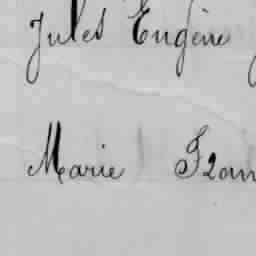 Jules Eugène
Marie Fran